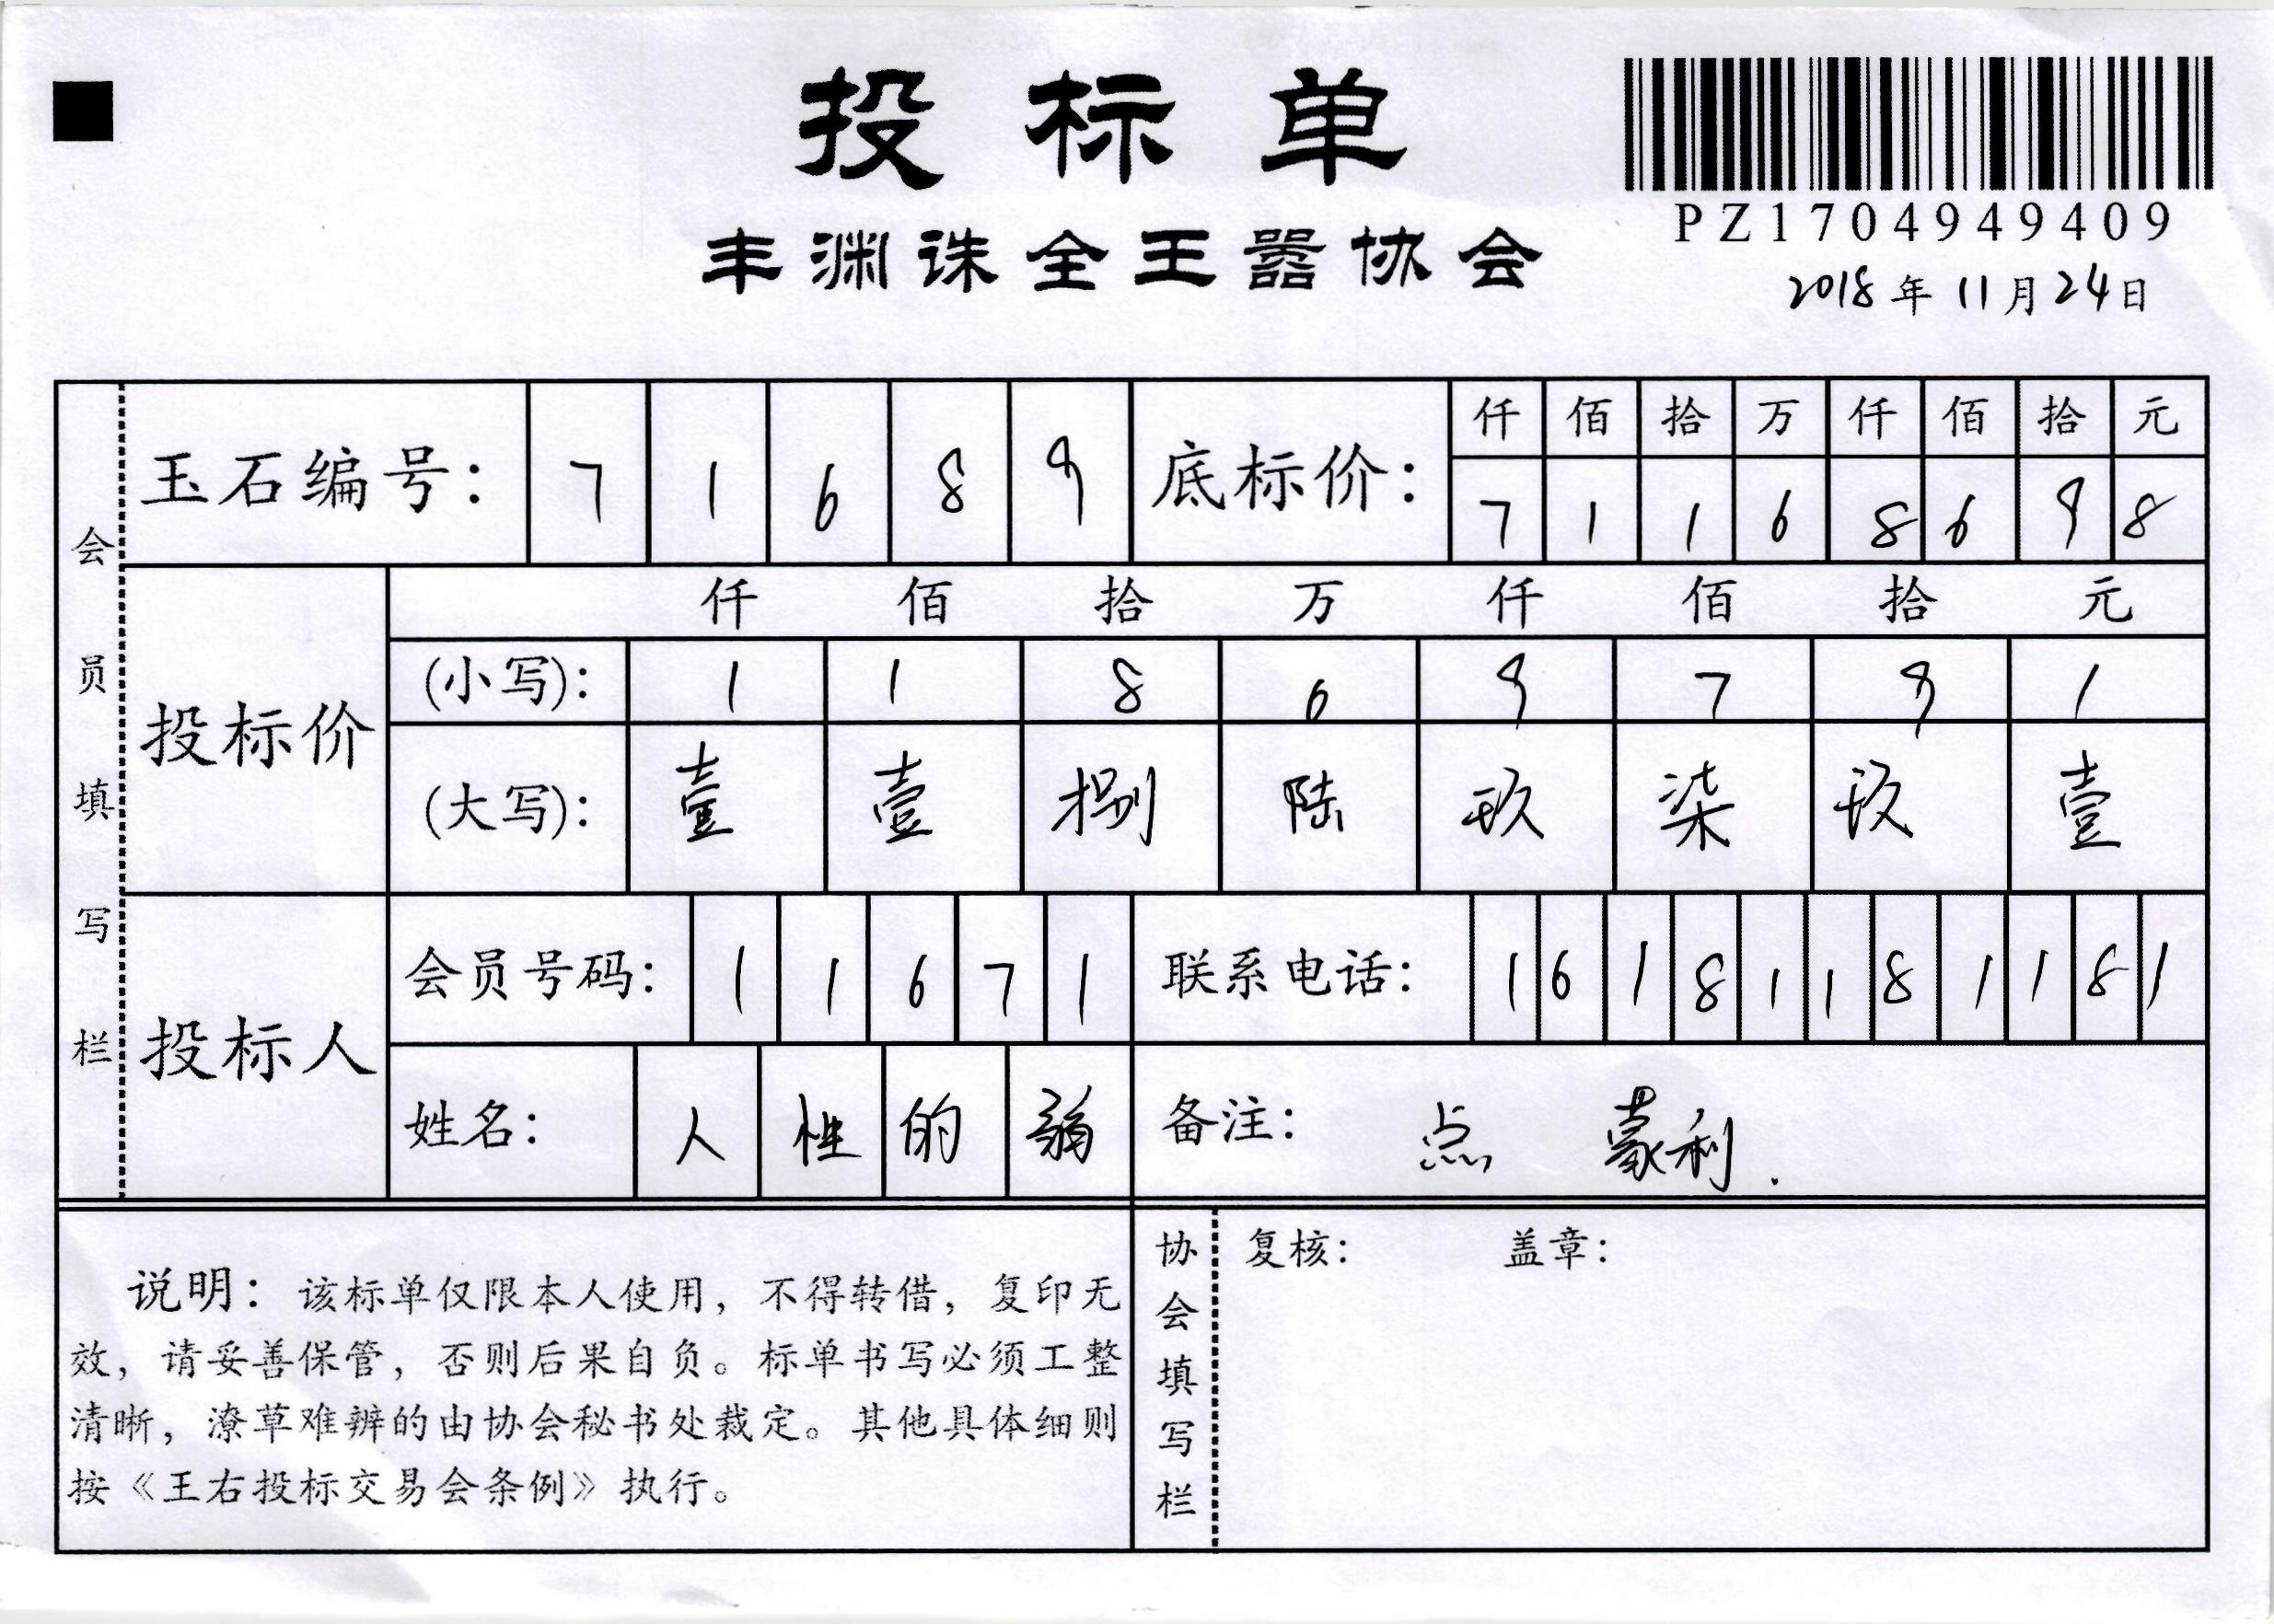 投标单
PZ1704949409
丰渊诛全王嚣协会
2018年11月24日
会员填写栏
玉石编号: 7 1 6 8 9
底标价: 仟 佰 拾 万 仟 佰 拾 元
7 1 1 6 8 6 9 8
投标价
仟 佰 拾 万 仟 佰 拾 元
(小写): 1 1 8 6 9 7 9 1
(大写): 壹 壹 捌 陆 玖 柒 玖 壹
投标人
会员号码: 1 1 6 7 1
联系电话: 1 6 1 8 1 1 8 1 1 8 1
姓名: 人 性 的 弱
备注: 点 蒙利.
说明: 该标单仅限本人使用, 不得转借, 复印无
效, 请妥善保管, 否则后果自负。标单书写必须工整
清晰, 潦草难辨的由协会秘书处裁定。其他具体细则
按《王右投标交易会条例》执行。
协会填写栏
复核: 盖章: